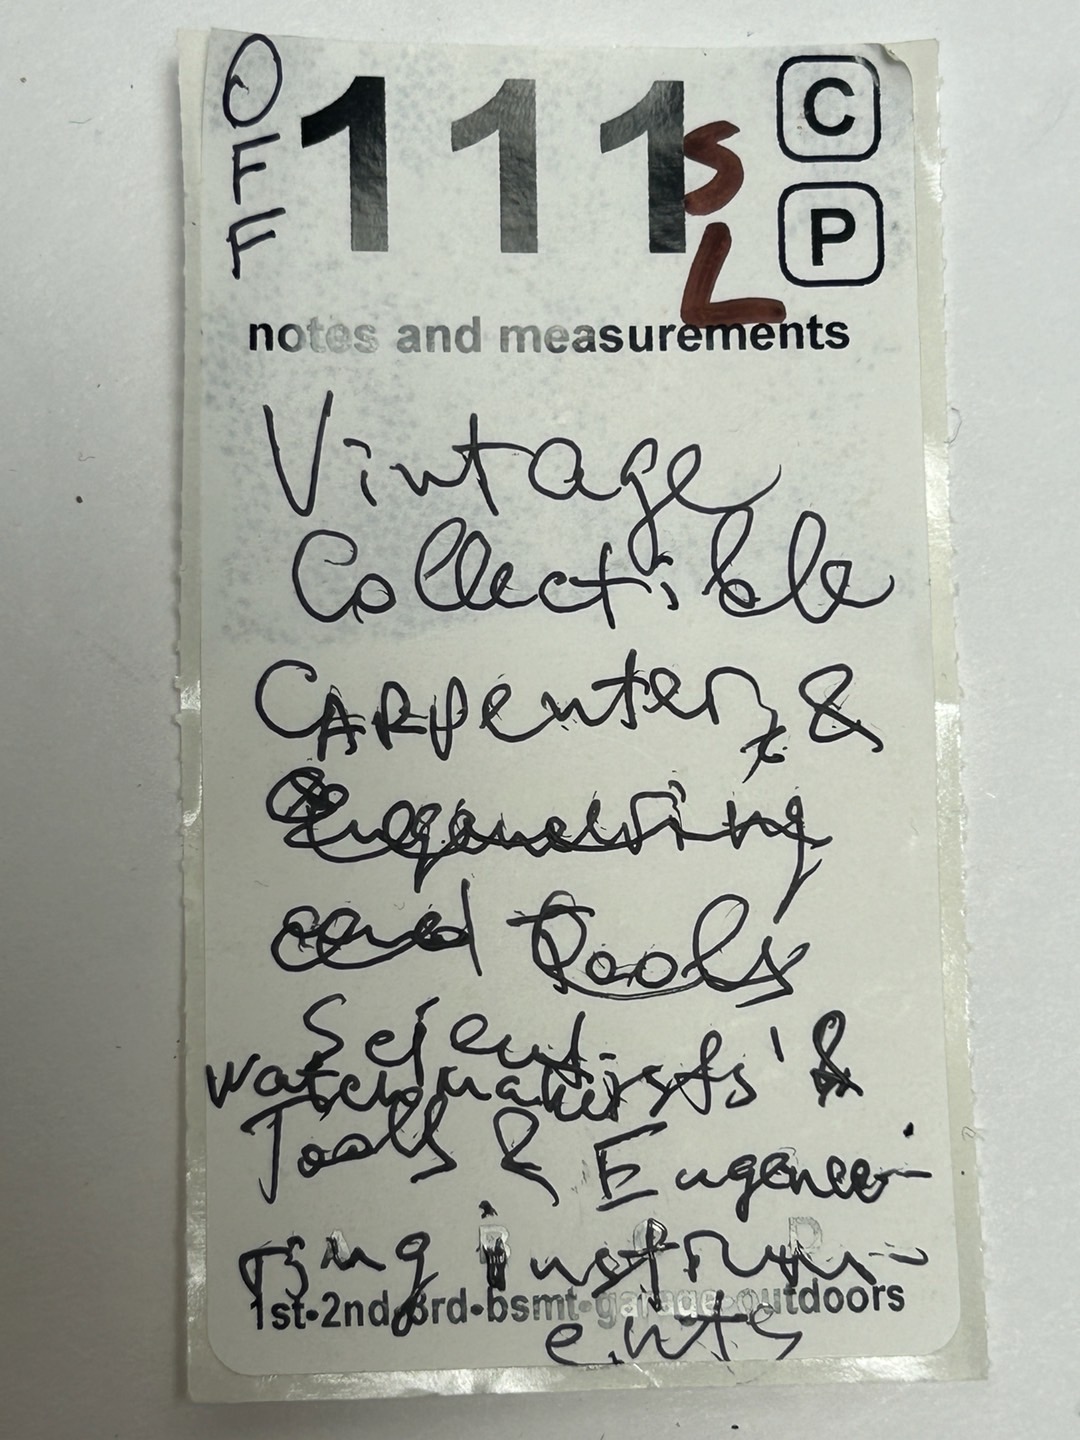 OFF
111
SL
C
P
notes and measurements
Vintage
Collectible
CARpenter &
Engeneering
and Tools
Scient-
watchmakers ists' &
Tools & Engenee-
ring instrum-
A B C D
1st•2nd•3rd•bsmt•garage•outdoors
ents